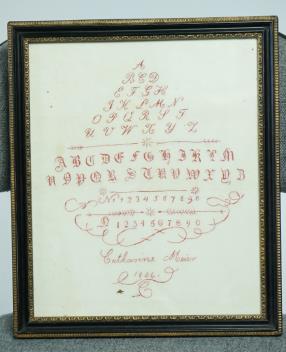 A
B C D
E F G H
I K L M N
O P Q R S T
U V W X Y Z
A B C D E F G H I K L M
N O P Q R S T U V W X Y Z
No 1 2 3 4 5 6 7 8 9 0
1 2 3 4 5 6 7 8 9 0
Catharine Meier